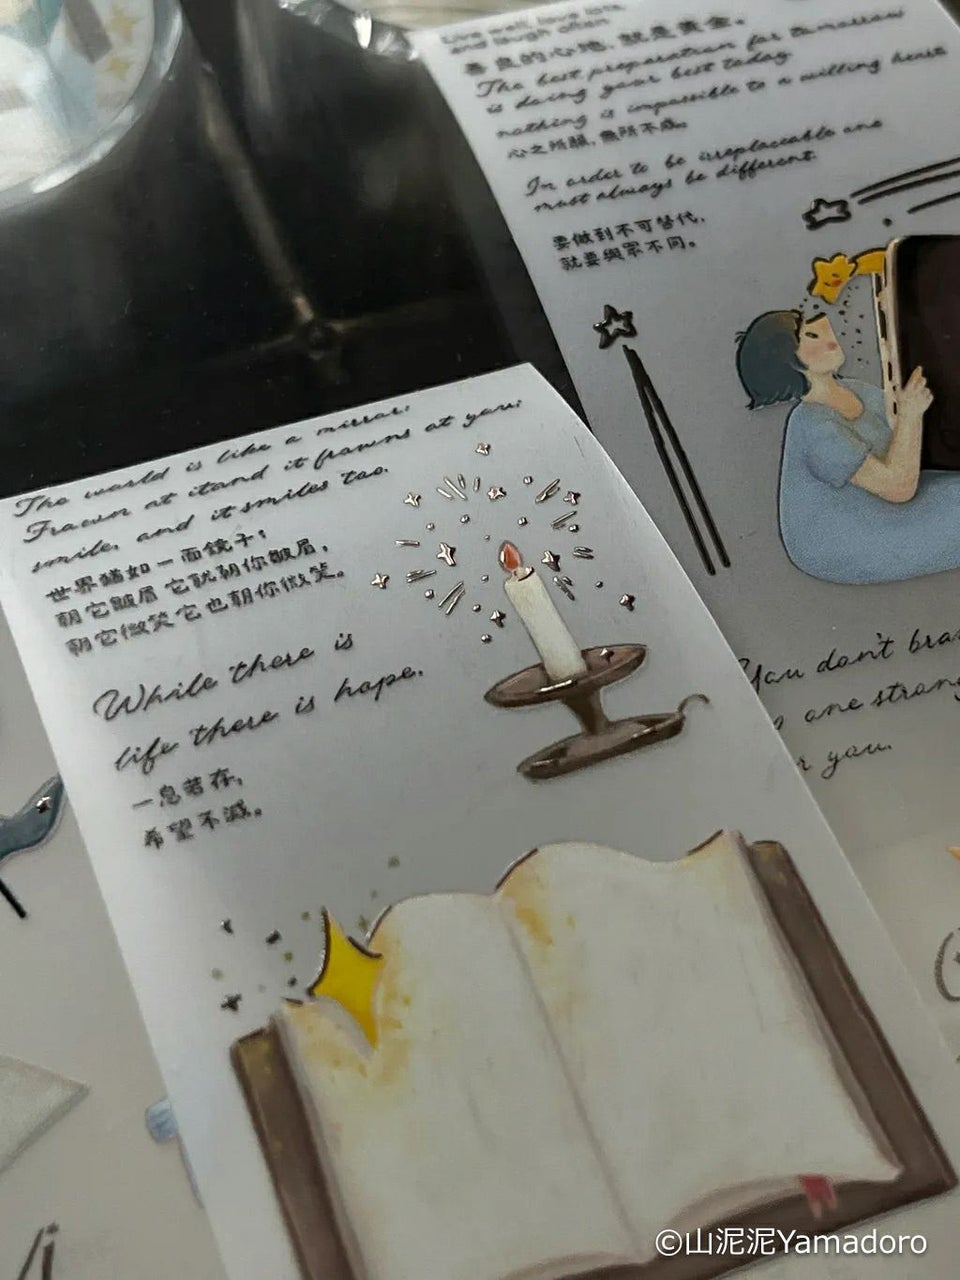 Live well, love lots,
and laugh often
善良的心地，就是黃金。
The best preparation for tomorrow
is doing your best today
nothing is impossible to a willing heart
心之所願，無所不成。
In order to be irreplaceable one
must always be different.
要做到不可替代，
就要與眾不同。
The world is like a mirror:
Frawn at itand it frowns at you;
smile, and it smiles too.
世界猶如一面鏡子：
朝它皺眉它就朝你皺眉，
朝它微笑它也朝你微笑。
While there is
life there is hope.
一息若存，
希望不滅。
You don't
one
you.
©山泥泥Yamadoro